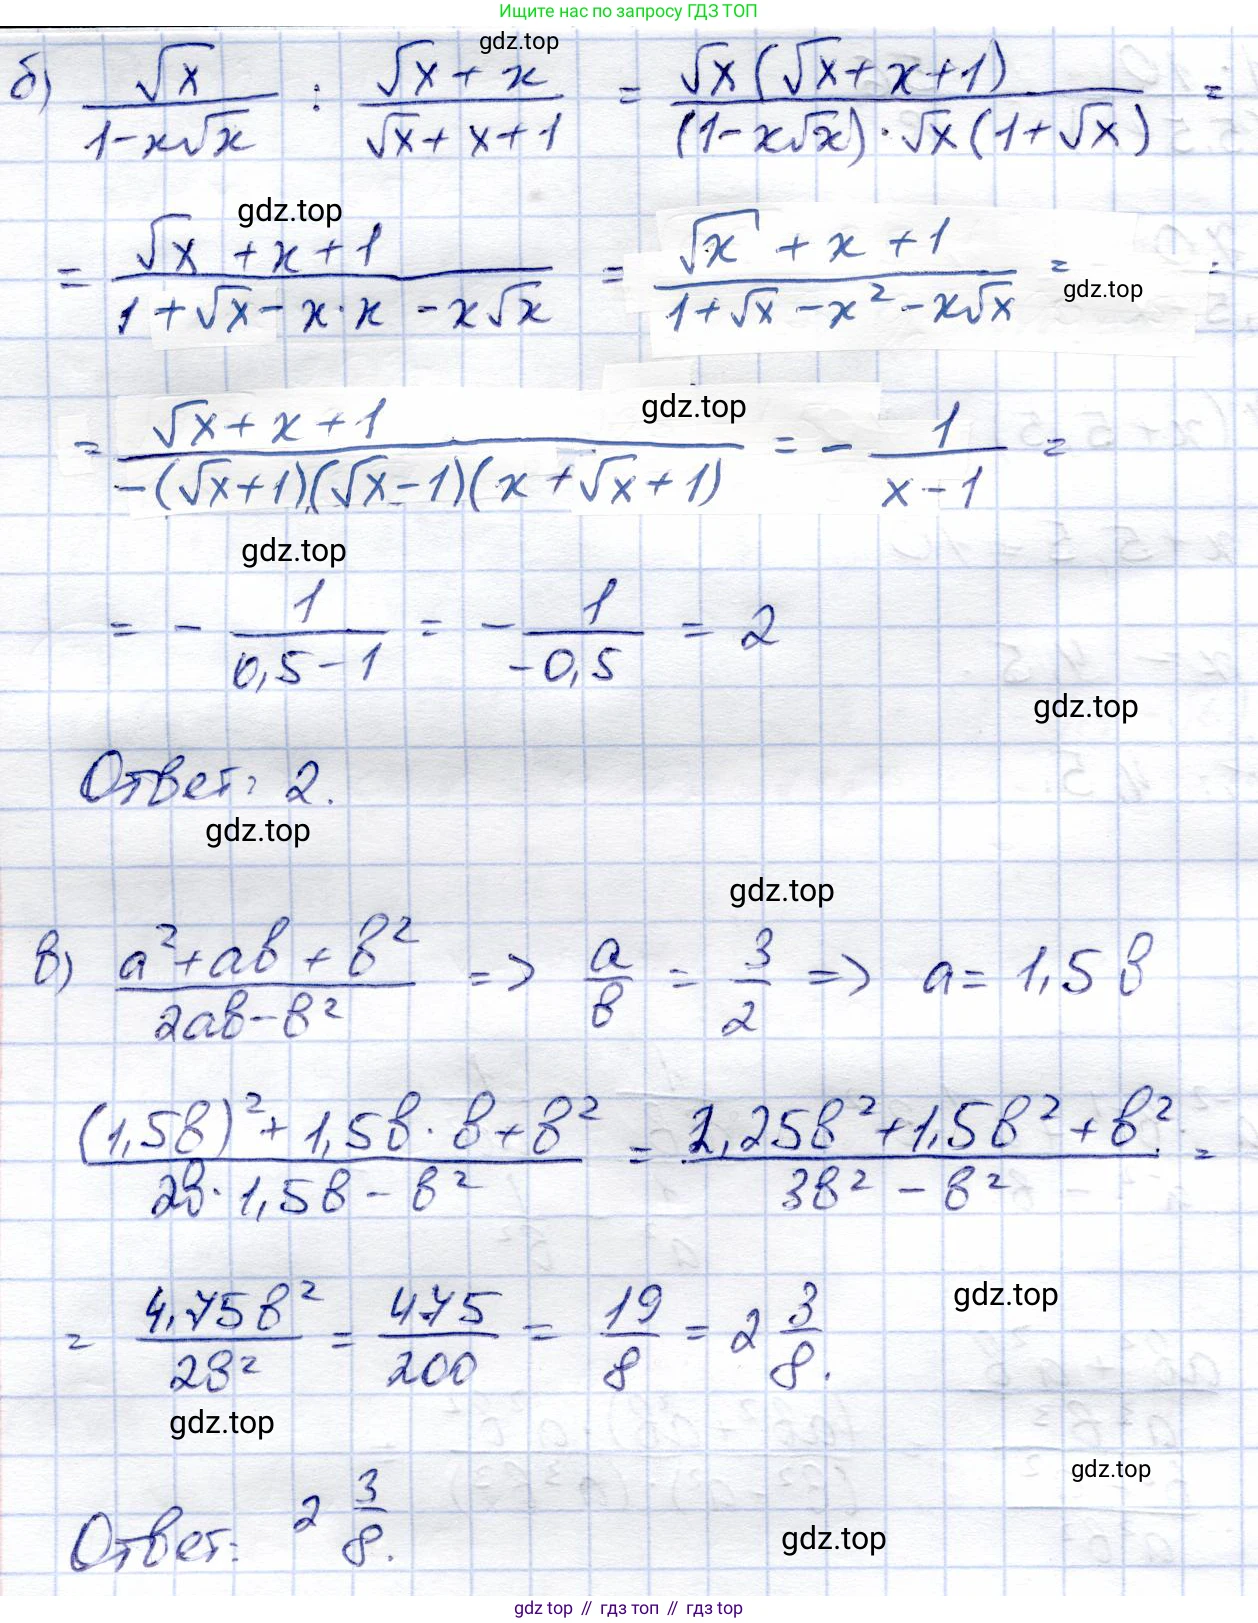 Ищите нас по запросу ГДЗ ТОП
gdz.top
б) √x / (1-x√x) : (√x + x) / (√x + x + 1) = √x (√x + x + 1) / ((1-x√x) · √x (1+√x)) =
gdz.top
= (√x + x + 1) / (1 + √x - x·x - x√x) = (√x + x + 1) / (1+√x - x² - x√x) =
gdz.top
gdz.top
= (√x + x + 1) / (-(√x+1)(√x-1)(x+√x+1)) = - 1 / (x-1) =
gdz.top
= - 1 / (0,5-1) = - 1 / (-0,5) = 2
gdz.top
Ответ: 2.
gdz.top
gdz.top
в) (a²+ab+b²) / (2ab-b²) => a/b = 3/2 => a = 1,5b
((1,5b)² + 1,5b·b+b²) / (2b·1,5b - b²) = (2,25b²+1,5b²+b²) / (3b² - b²) =
gdz.top
= 4,75b² / 2b² = 475/200 = 19/8 = 2 3/8.
gdz.top
gdz.top
Ответ: 2 3/8.
gdz.top
gdz.top // гдз топ // gdz.top